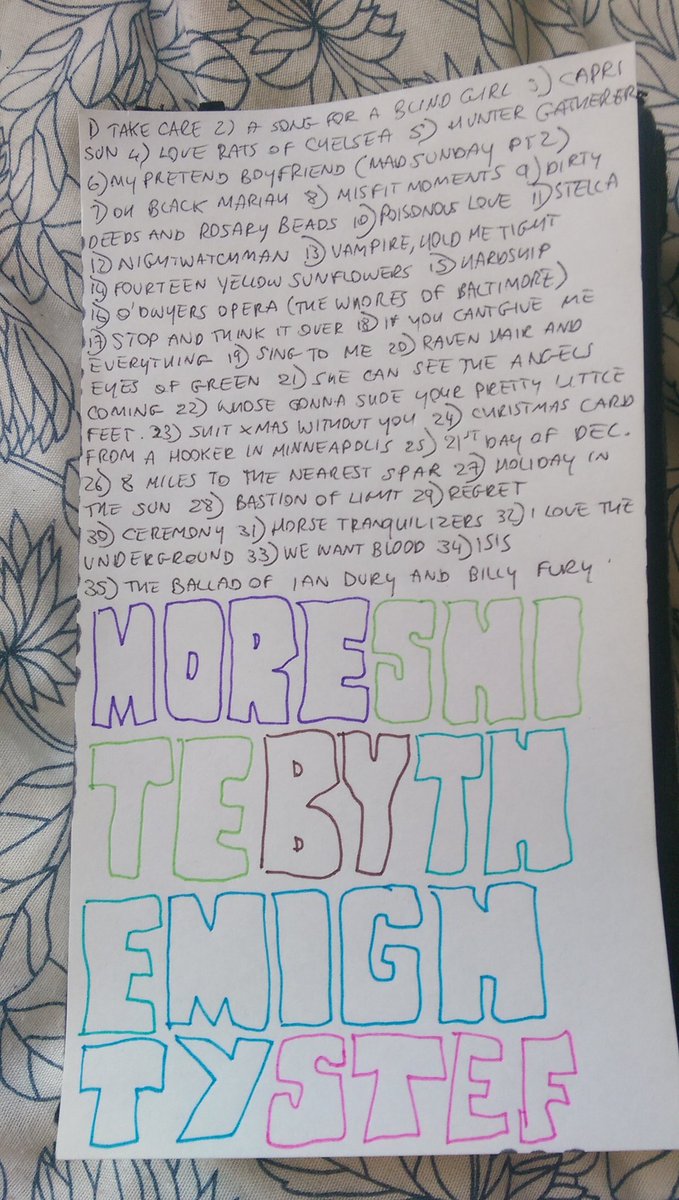 1) TAKE CARE 2) A SONG FOR A BLIND GIRL 3) CAPRI
SUN 4) LOVE RATS OF CHELSEA 5) HUNTER GATHERER
6) MY PRETEND BOYFRIEND (MAD SUNDAY PT2)
7) OH BLACK MARIAH 8) MISFIT MOMENTS 9) DIRTY
DEEDS AND ROSARY BEADS 10) POISONOUS LOVE 11) STELLA
12) NIGHTWATCHMAN 13) VAMPIRE, HOLD ME TIGHT
14) FOURTEEN YELLOW SUNFLOWERS 15) HARDSHIP
16) O'DWYERS OPERA (THE WHORES OF BALTIMORE)
17) STOP AND THINK IT OVER 18) IF YOU CANT GIVE ME
EVERYTHING 19) SING TO ME 20) RAVEN HAIR AND
EYES OF GREEN 21) SHE CAN SEE THE ANGELS
COMING 22) WHOSE GONNA SHOE YOUR PRETTY LITTLE
FEET. 23) SHIT XMAS WITHOUT YOU 24) CHRISTMAS CARD
FROM A HOOKER IN MINNEAPOLIS 25) 21ST DAY OF DEC.
26) 8 MILES TO THE NEAREST SPAR 27) HOLIDAY IN
THE SUN 28) BASTION OF LIGHT 29) REGRET
30) CEREMONY 31) HORSE TRANQUILIZERS 32) I LOVE THE
UNDERGROUND 33) WE WANT BLOOD 34) ISIS
35) THE BALLAD OF IAN DURY AND BILLY FURY
MORESHI
TEBYTH
EMIGH
TYSTEF